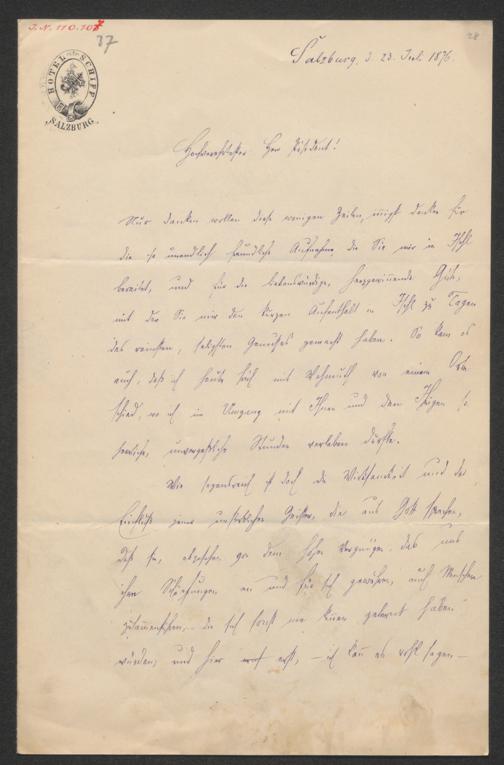 J.N. 110.107
37
28
HOTEL ZUM SCHIFF
SALZBURG
Salzburg, d. 23. Juli 1876.
Hochverehrtester Herr Präsident!
Nur danken wollen diese wenigen Zeilen, innigst danken für
die so unendlich freundliche Aufnahme die Sie mir in Ischl
bereitet, und für die liebenswürdige, herzgewinnende Güte,
mit der Sie mir den kurzen Aufenthalt in Ischl zu Tagen
des reinsten, seligsten Genusses gemacht haben. So kam es
auch, daß ich heute früh mit Wehmuth von einem Orte
schied, wo ich im Umgang mit Ihnen und den Ihrigen so
herrliche, unvergeßliche Stunden verleben durfte.
Wie segensreich ist doch die Wirksamkeit und der
Einfluß jener unsterblichen Geister, die aus Gott sprechen,
daß sie, abgesehen von dem hohen Vergnügen, das uns
ihre Schöpfungen an und für sich gewähren, auch Menschen
zusammenführen, die sich sonst nie kennen gelernt haben
würden; und hier erst, – ich kann es wohl sagen –